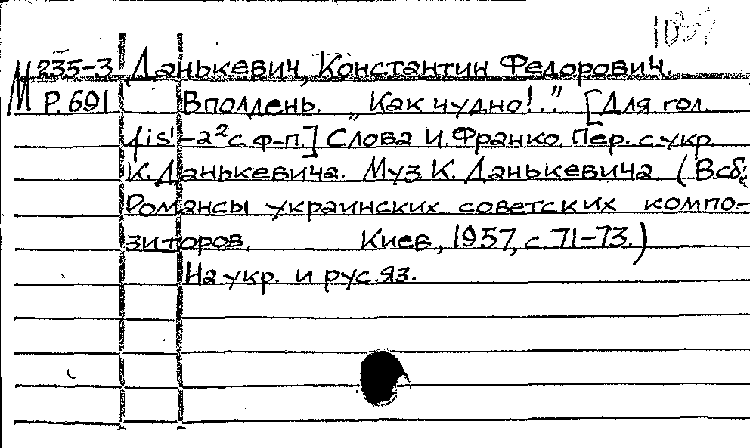 М 235-3 Данькевич, Константин Федорович.
Р. 691 Вполдень. „Как чудно!.." [Для гол.
fis¹-a² с ф-п.] Слова И. Франко. Пер. с укр.
К. Данькевича. Муз. К. Данькевича (В сб.:
Романсы украинских советских компо-
зиторов. Киев, 1957, с. 71-73.)
На укр. и рус. яз.